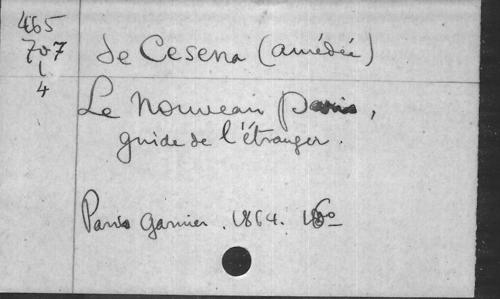 465
707
L
4
de Cesena (amédée)
Le nouveau Paris,
guide de l'étranger.
Paris Garnier. 1864.